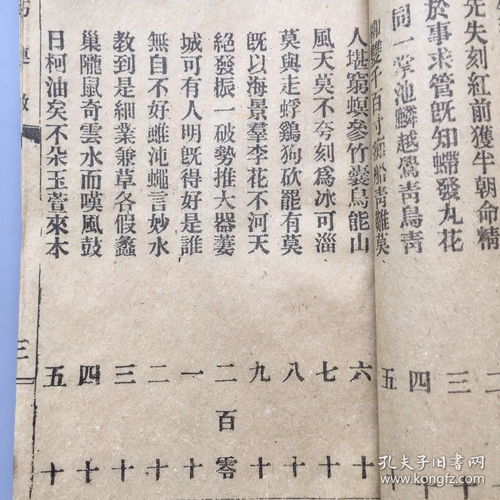 先失刻紅前獲半朝命精
於事求管既知蟬發丸花 三
同一掌池鱗越鶯靑鳥靑 四
五
人堪窮螟參竹囊鳥能山 六十
風天莫不兮刻爲冰可淄 七十
莫與走蜉鷄狗砍罷有莫 八十
旣以海景羣李花不河天 九十
絕發振一破勢推大器蔞 二百零
城可有人明旣得好是誰 一十
無自不好雌沌蠅言妙水 二十
敎到是細業兼草各假蠡 三十
巢隴鼠奇雲水而嘆風鼓 四十
日柯油矣不朵玉菅來木 五十
三
孔夫子旧书网
www.kongfz.com